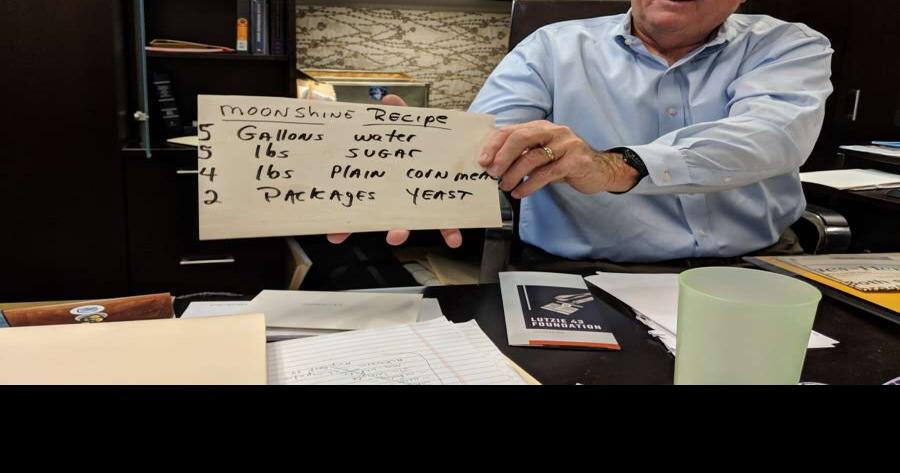 MOONSHINE RECIPE
5 GALLONS water
5 lbs SUGAR
4 lbs PLAIN CORN MEA
2 PACKAGES YEAST
LUTZIE 43
FOUNDATION